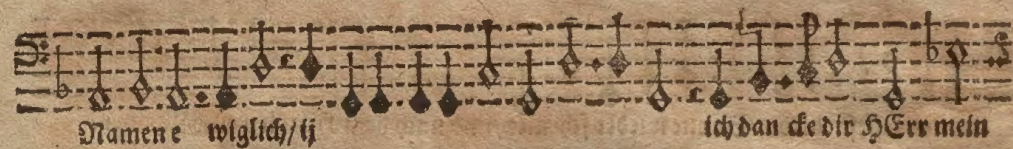 Namen e wiglich/ ij ich dan cke dir HErr mein